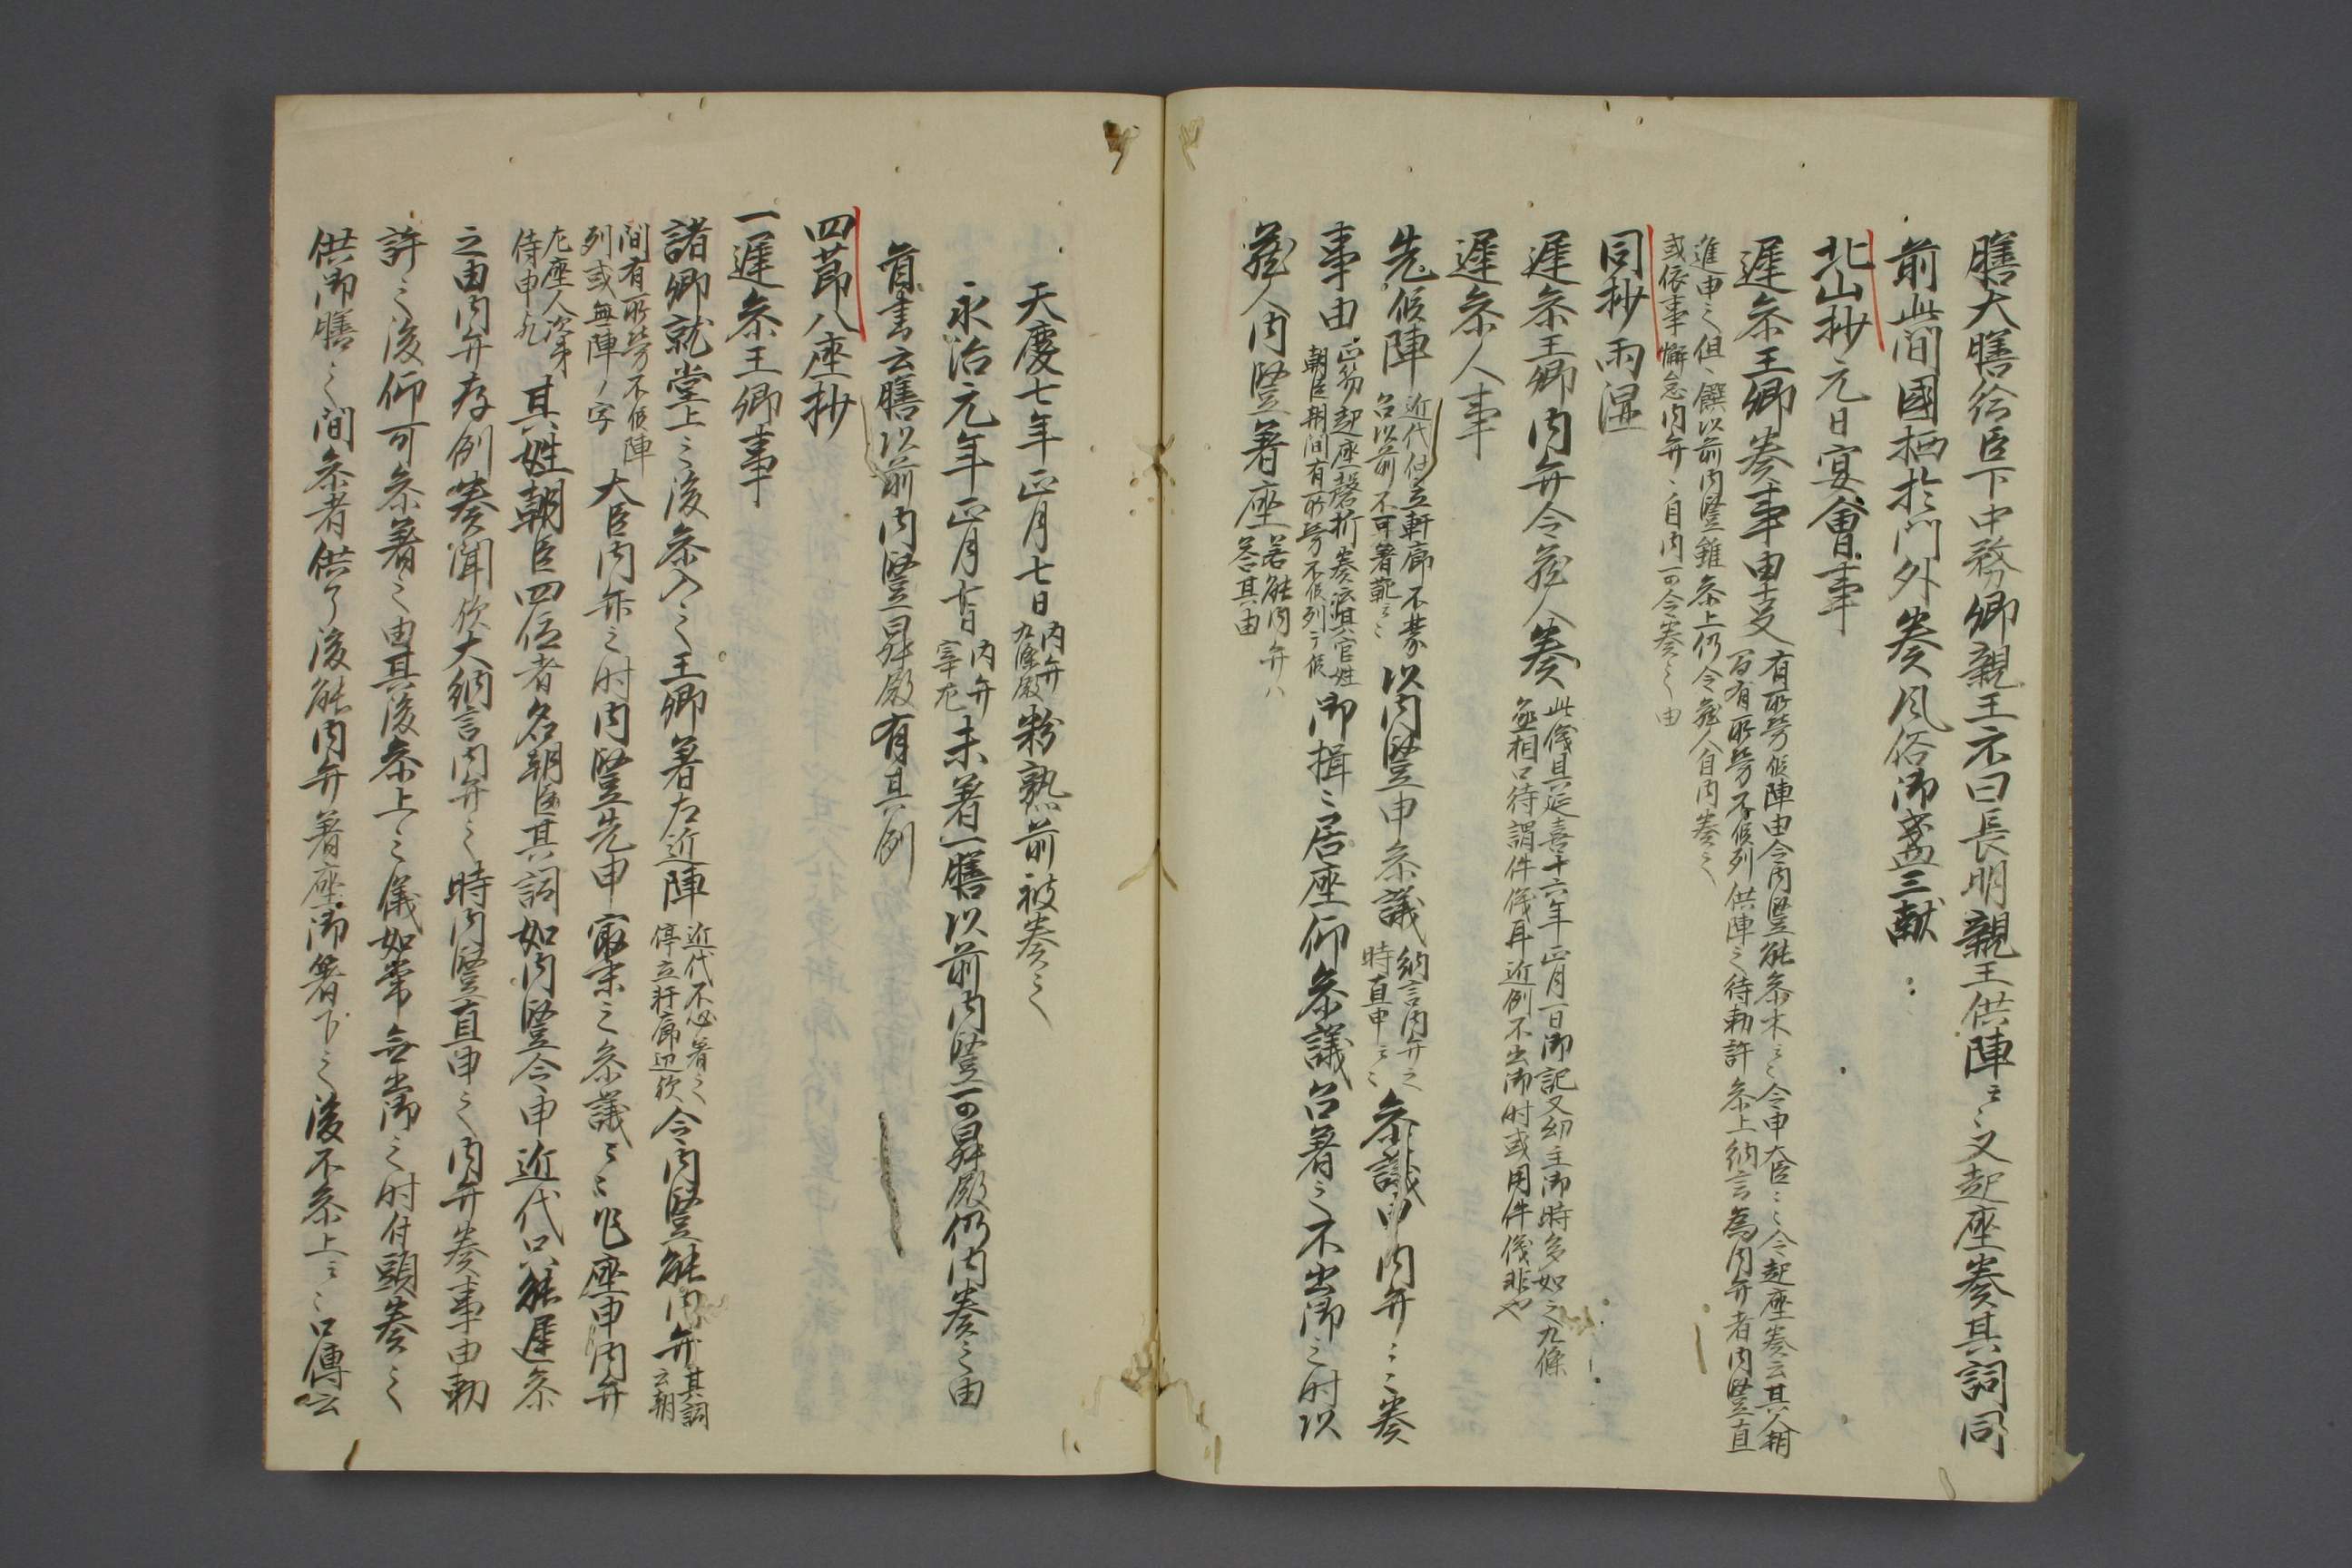 膳大膳給臣下中務卿親王不曰長明親王供陣云々又起座奏其詞同
前此間國栖於門外奏風俗御盞三献
北山抄元日宴會事
遅参王卿奏事由
有所勞候陣由令内竪
進申之但饌以前内竪雖参上仍令蔵人自内奏之
或依事懈怠内弁自内可令奏之由
同抄雨湿
遅参王卿内弁令蔵人奏
此儀具延喜十六年正月一日御記又幼主御時多如之九條
丞相口待謂件儀耳近例不出御時或用件儀非也
遅参人事
先候陣
近代佇立軒廊不
召以前不可着靴云々
以内竪申参議
納言内弁之
時直申云々
参議申内弁々々奏
事由
正笏起座磬折奏云其官姓
朝臣朝間有所勞不候列
御揖々居座仰参議召着之不出御之時以
蔵人内竪着座
若觸内弁
答其由
天慶七年正月七日
内弁
九條殿
粉熟前被奏之
永治元年正月
内弁
宰府
未着一膳以前内竪可昇殿仍内奏之由
首書云膳以前内竪昇殿有其例
四節八座抄
一遅参王卿事
諸卿就堂上之後参入之王卿着左近陣
近代不必着之
停立軒廊辺欤
令内竪觸内弁
其詞
云朝
間有所勞不候陣
列或無陣ノ字
大臣内弁之时内竪先申最末之参議々々起座申内弁
左座人次第
侍申
其姓朝臣四位者名朝臣其詞如内竪令申近代只觸遅参
之由内弁存例奏聞欤大納言内弁之時内竪直申之内弁奏事由勅
許之後仰可参着之由其後参上之儀如常無出御之时付頭奏之
供御膳之間参者供了後觸内弁着座御箸下之後不参上云々口傳云